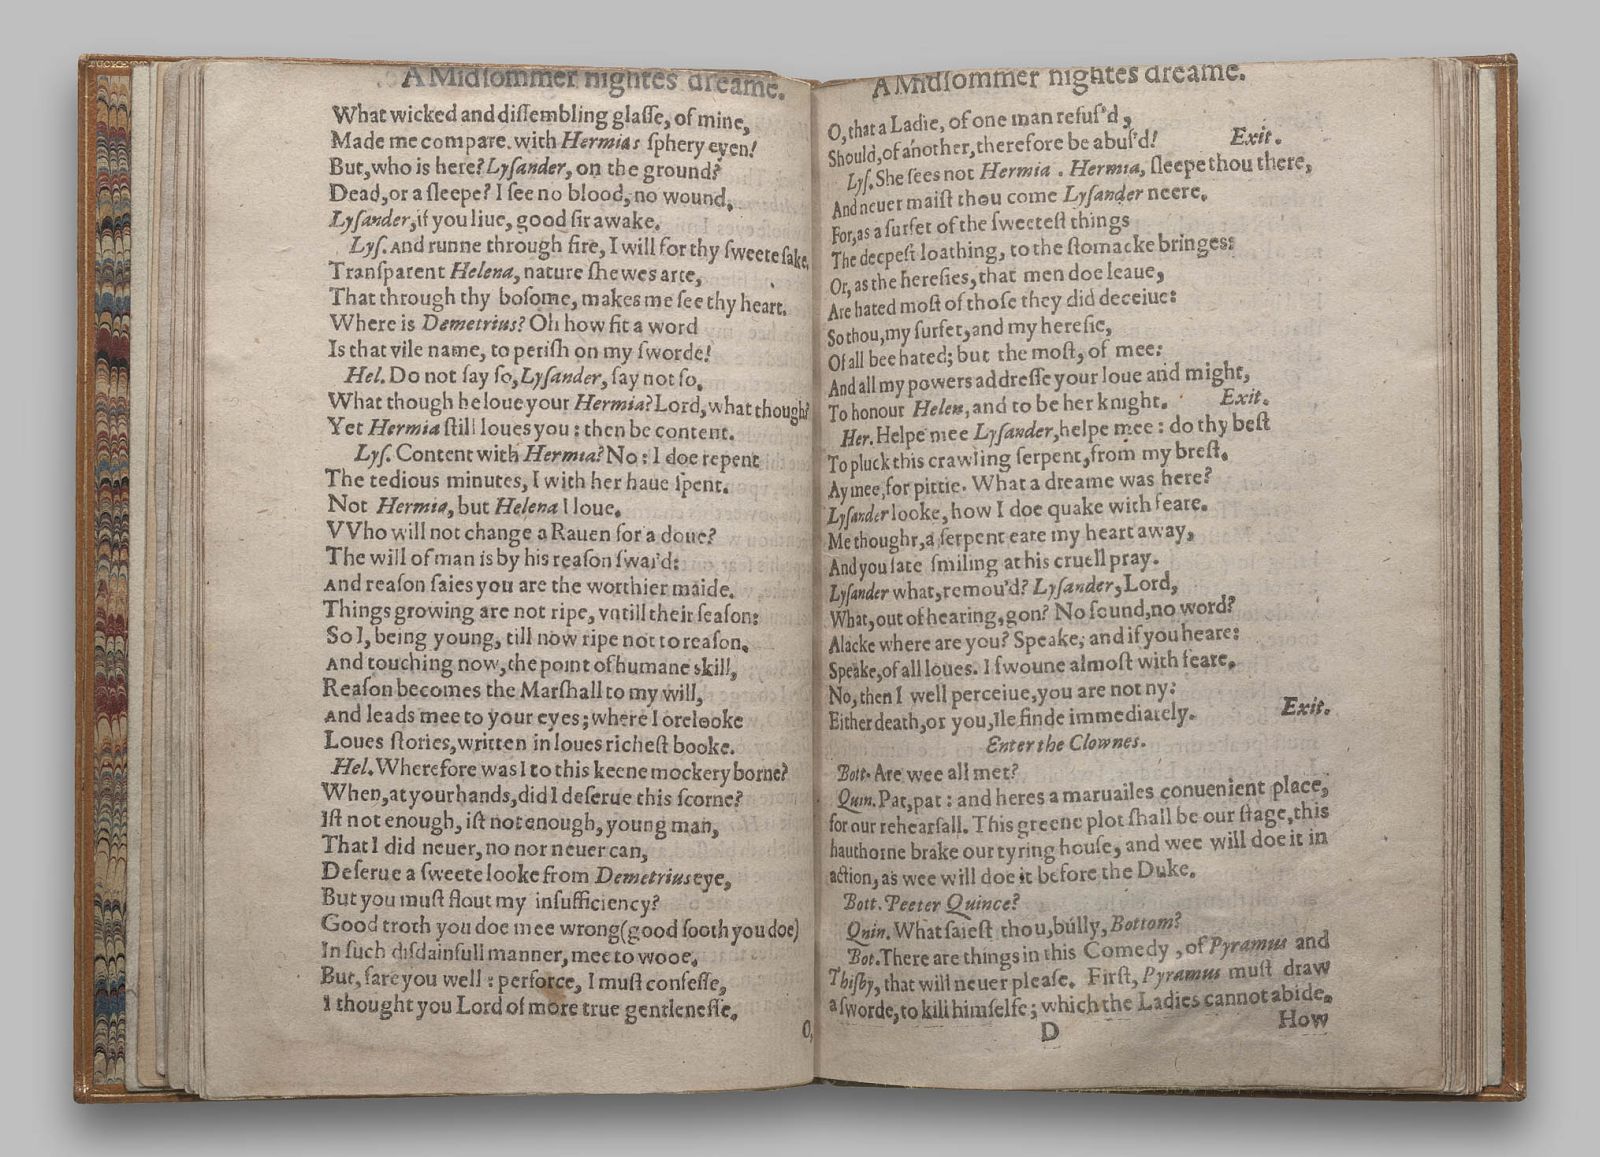 A Midsommer nightes dreame.
What wicked and diſſembling glaſſe, of mine,
Made me compare. with Hermias ſphery eyen!
But, who is here? Lyſander, on the ground?
Dead, or a ſleepe? I ſee no blood, no wound.
Lyſander, if you liue, good ſir awake.
Lyſ. And runne through fire, I will for thy ſweete ſake.
Tranſparent Helena, nature ſhewes arte,
That through thy boſome, makes me ſee thy heart.
Where is Demetrius? Oh how fit a word
Is that vile name, to periſh on my ſworde!
Hel. Do not ſay ſo, Lyſander, ſay not ſo.
What though he loue your Hermia? Lord, what though?
Yet Hermia ſtill loues you: then be content.
Lyſ. Content with Hermia? No: I doe repent
The tedious minutes, I with her haue ſpent.
Not Hermia, but Helena I loue.
VVho will not change a Rauen for a doue?
The will of man is by his reaſon ſwai'd:
And reaſon ſaies you are the worthier maide.
Things growing are not ripe, vntill their ſeaſon:
So I, being young, till now ripe not to reaſon,
And touching now, the point of humane skill,
Reaſon becomes the Marſhall to my will,
And leads mee to your eyes; where I orelooke
Loues ſtories, written in loues richeſt booke.
Hel. Wherefore was I to this keene mockery borne?
When, at your hands, did I deſerue this ſcorne?
Iſt not enough, iſt not enough, young man,
That I did neuer, no nor neuer can,
Deſerue a ſweete looke from Demetrius eye,
But you muſt flout my inſufficiency?
Good troth you doe mee wrong (good ſooth you doe)
In ſuch diſdainfull manner, mee to wooe.
But, fare you well: perforce, I muſt confeſſe,
I thought you Lord of more true gentleneſſe.
O,
A Midsommer nightes dreame.
O, that a Ladie, of one man refuſ'd,
Should, of another, therefore be abuſ'd! Exit.
Lyſ. She ſees not Hermia. Hermia, ſleepe thou there,
And neuer maiſt thou come Lyſander neere.
For, as a ſurfet of the ſweeteſt things
The deepeſt loathing, to the ſtomacke bringes:
Or, as the hereſies, that men doe leaue,
Are hated moſt of thoſe they did deceiue:
So thou, my ſurfet, and my hereſie,
Of all bee hated; but the moſt, of mee:
And all my powers addreſſe your loue and might,
To honour Helen, and to be her knight. Exit.
Her. Helpe mee Lyſander, helpe mee: do thy beſt
To pluck this crawling ſerpent, from my breſt.
Ay mee, for pittie. What a dreame was here?
Lyſander looke, how I doe quake with feare.
Me thoughr, a ſerpent eate my heart away,
And you ſate ſmiling at his cruell pray.
Lyſander what, remou'd? Lyſander, Lord,
What, out of hearing, gon? No ſound, no word?
Alacke where are you? Speake, and if you heare:
Speake, of all loues. I ſwoune almoſt with feare.
No, then I well perceiue, you are not ny:
Either death, or you, Ile finde immediately. Exit.
Enter the Clownes.
Bott. Are wee all met?
Quin. Pat, pat: and heres a maruailes conuenient place,
for our rehearſall. This greene plot ſhall be our ſtage, this
hauthorne brake our tyring houſe, and wee will doe it in
action, as wee will doe it before the Duke.
Bott. Peeter Quince?
Quin. What ſaieſt thou, bully, Bottom?
Bot. There are things in this Comedy, of Pyramus and
Thiſby, that will neuer pleaſe. Firſt, Pyramus muſt draw
a ſworde, to kill himſelfe; which the Ladies cannot abide.
D How